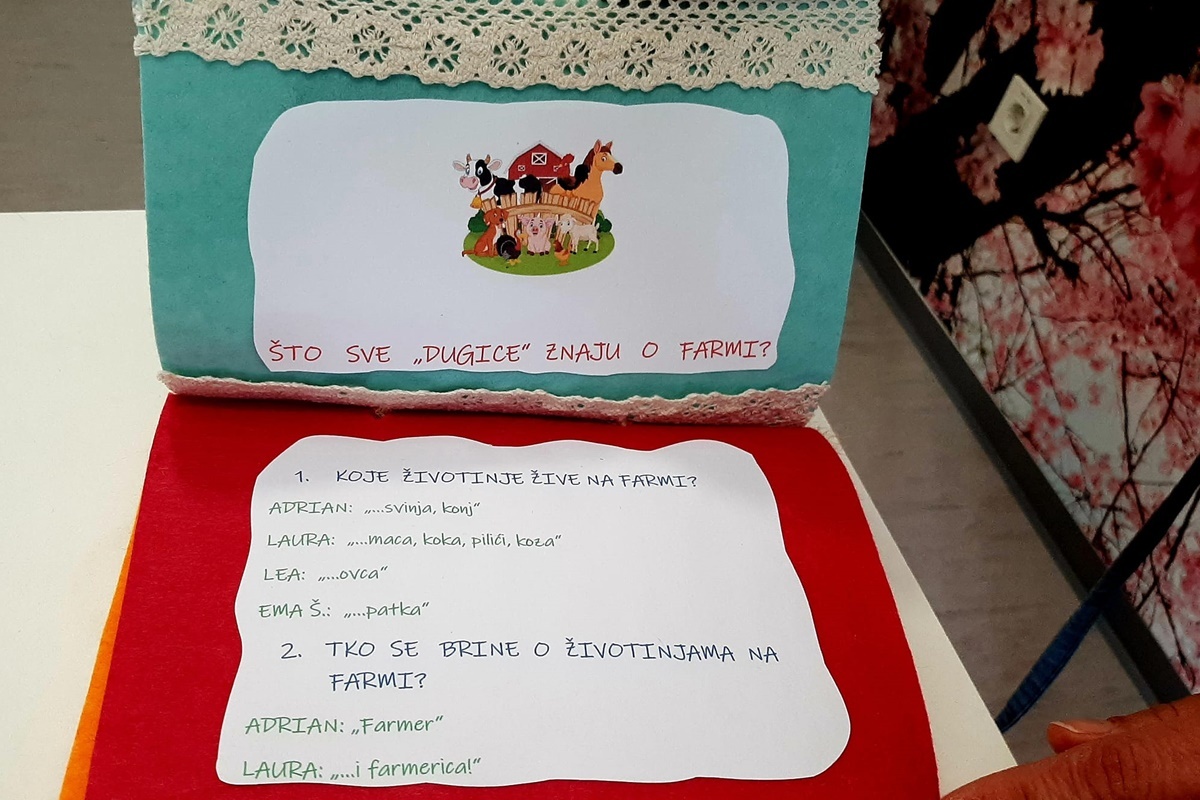 ŠTO SVE „DUGICE“ ZNAJU O FARMI?
1. KOJE ŽIVOTINJE ŽIVE NA FARMI?
ADRIAN: „...svinja, konj“
LAURA: „...maca, koka, pilići, koza“
LEA: „...ovca“
EMA Š.: „...patka“
2. TKO SE BRINE O ŽIVOTINJAMA NA
FARMI?
ADRIAN: „Farmer“
LAURA: „...i farmerica!“